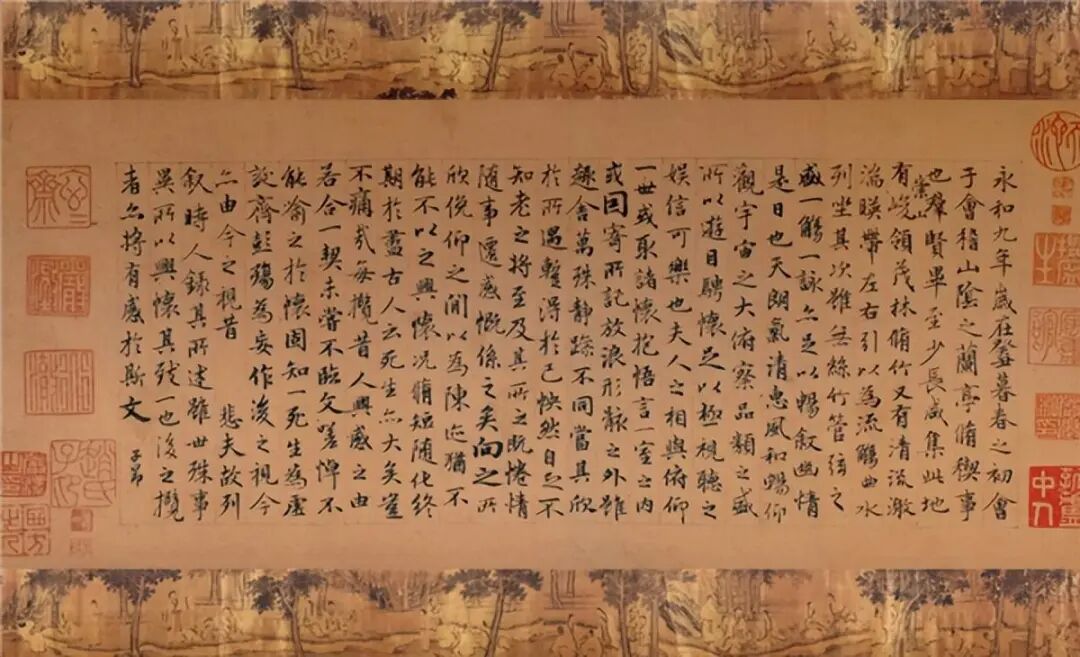 永和九年歲在癸丑暮春之初會
于會稽山陰之蘭亭脩稧事
也羣賢畢至少長咸集此地
有崇山峻領茂林脩竹又有清流激
湍暎帶左右引以為流觴曲水
列坐其次雖無絲竹管弦之
盛一觴一詠亦足以暢敘幽情
是日也天朗氣清惠風和暢仰
觀宇宙之大俯察品類之盛
所以遊目騁懷足以極視聽之
娛信可樂也夫人之相與俯仰
一世或取諸懷抱悟言一室之內
或因寄所託放浪形骸之外雖
趣舍萬殊靜躁不同當其欣
於所遇暫得於己怏然自足不
知老之將至及其所之既惓情
隨事遷感慨係之矣向之所
欣俛仰之閒以為陳迹猶不
能不以之興懷況脩短隨化終
期於盡古人云死生亦大矣豈
不痛哉每攬昔人興感之由
若合一契未嘗不臨文嗟悼不
能喻之於懷固知一死生為虛
誕齊彭殤為妄作後之視今
亦由今之視昔 悲夫故列
叙時人錄其所述雖世殊事
異所以興懷其致一也後之攬
者亦將有感於斯文
子昂